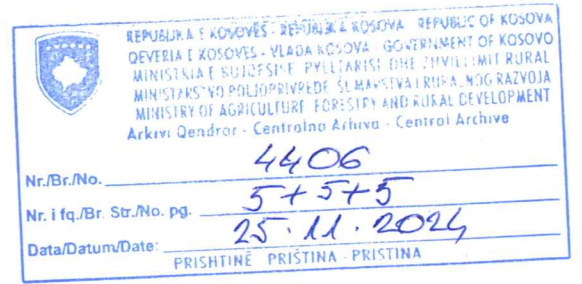 REPUBLIKA E KOSOVËS - REPUBLIKA KOSOVA - REPUBLIC OF KOSOVA
QEVERIA E KOSOVËS - VLADA KOSOVA - GOVERNMENT OF KOSOVO
MINISTRIA E BUJQËSISË PYLLTARISË DHE ZHVILLIMIT RURAL
MINISTARSTVO POLJOPRIVREDE ŠUMARSTVA I RURALNOG RAZVOJA
MINISTRY OF AGRICULTURE FORESTRY AND RURAL DEVELOPMENT
Arkivi Qendror - Centralna Arhiva - Central Archive
Nr./Br./No. 4406
Nr. i fq./Br. Str./No. pg. 5+5+5
Data/Datum/Date: 25.11.2024
PRISHTINË PRIŠTINA - PRISTINA